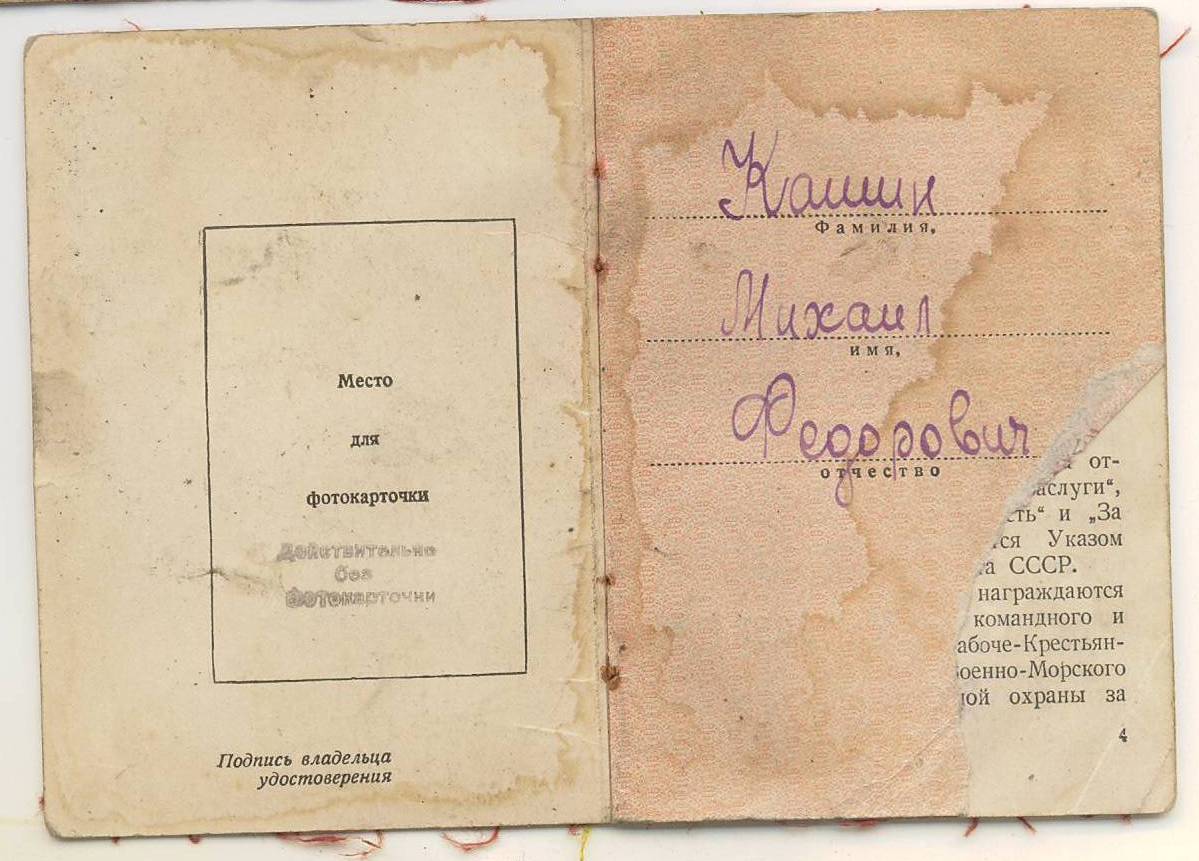 Место
для
фотокарточки
Действительно
без
фотокарточки
Подпись владельца
удостоверения
Кашин
Фамилия,
Михаил
имя,
Федорович
отчество
от-
аслуги“,
сть“ и „За
тся Указом
та СССР.
награждаются
командного и
абоче-Крестьян-
Военно-Морского
ной охраны за
4